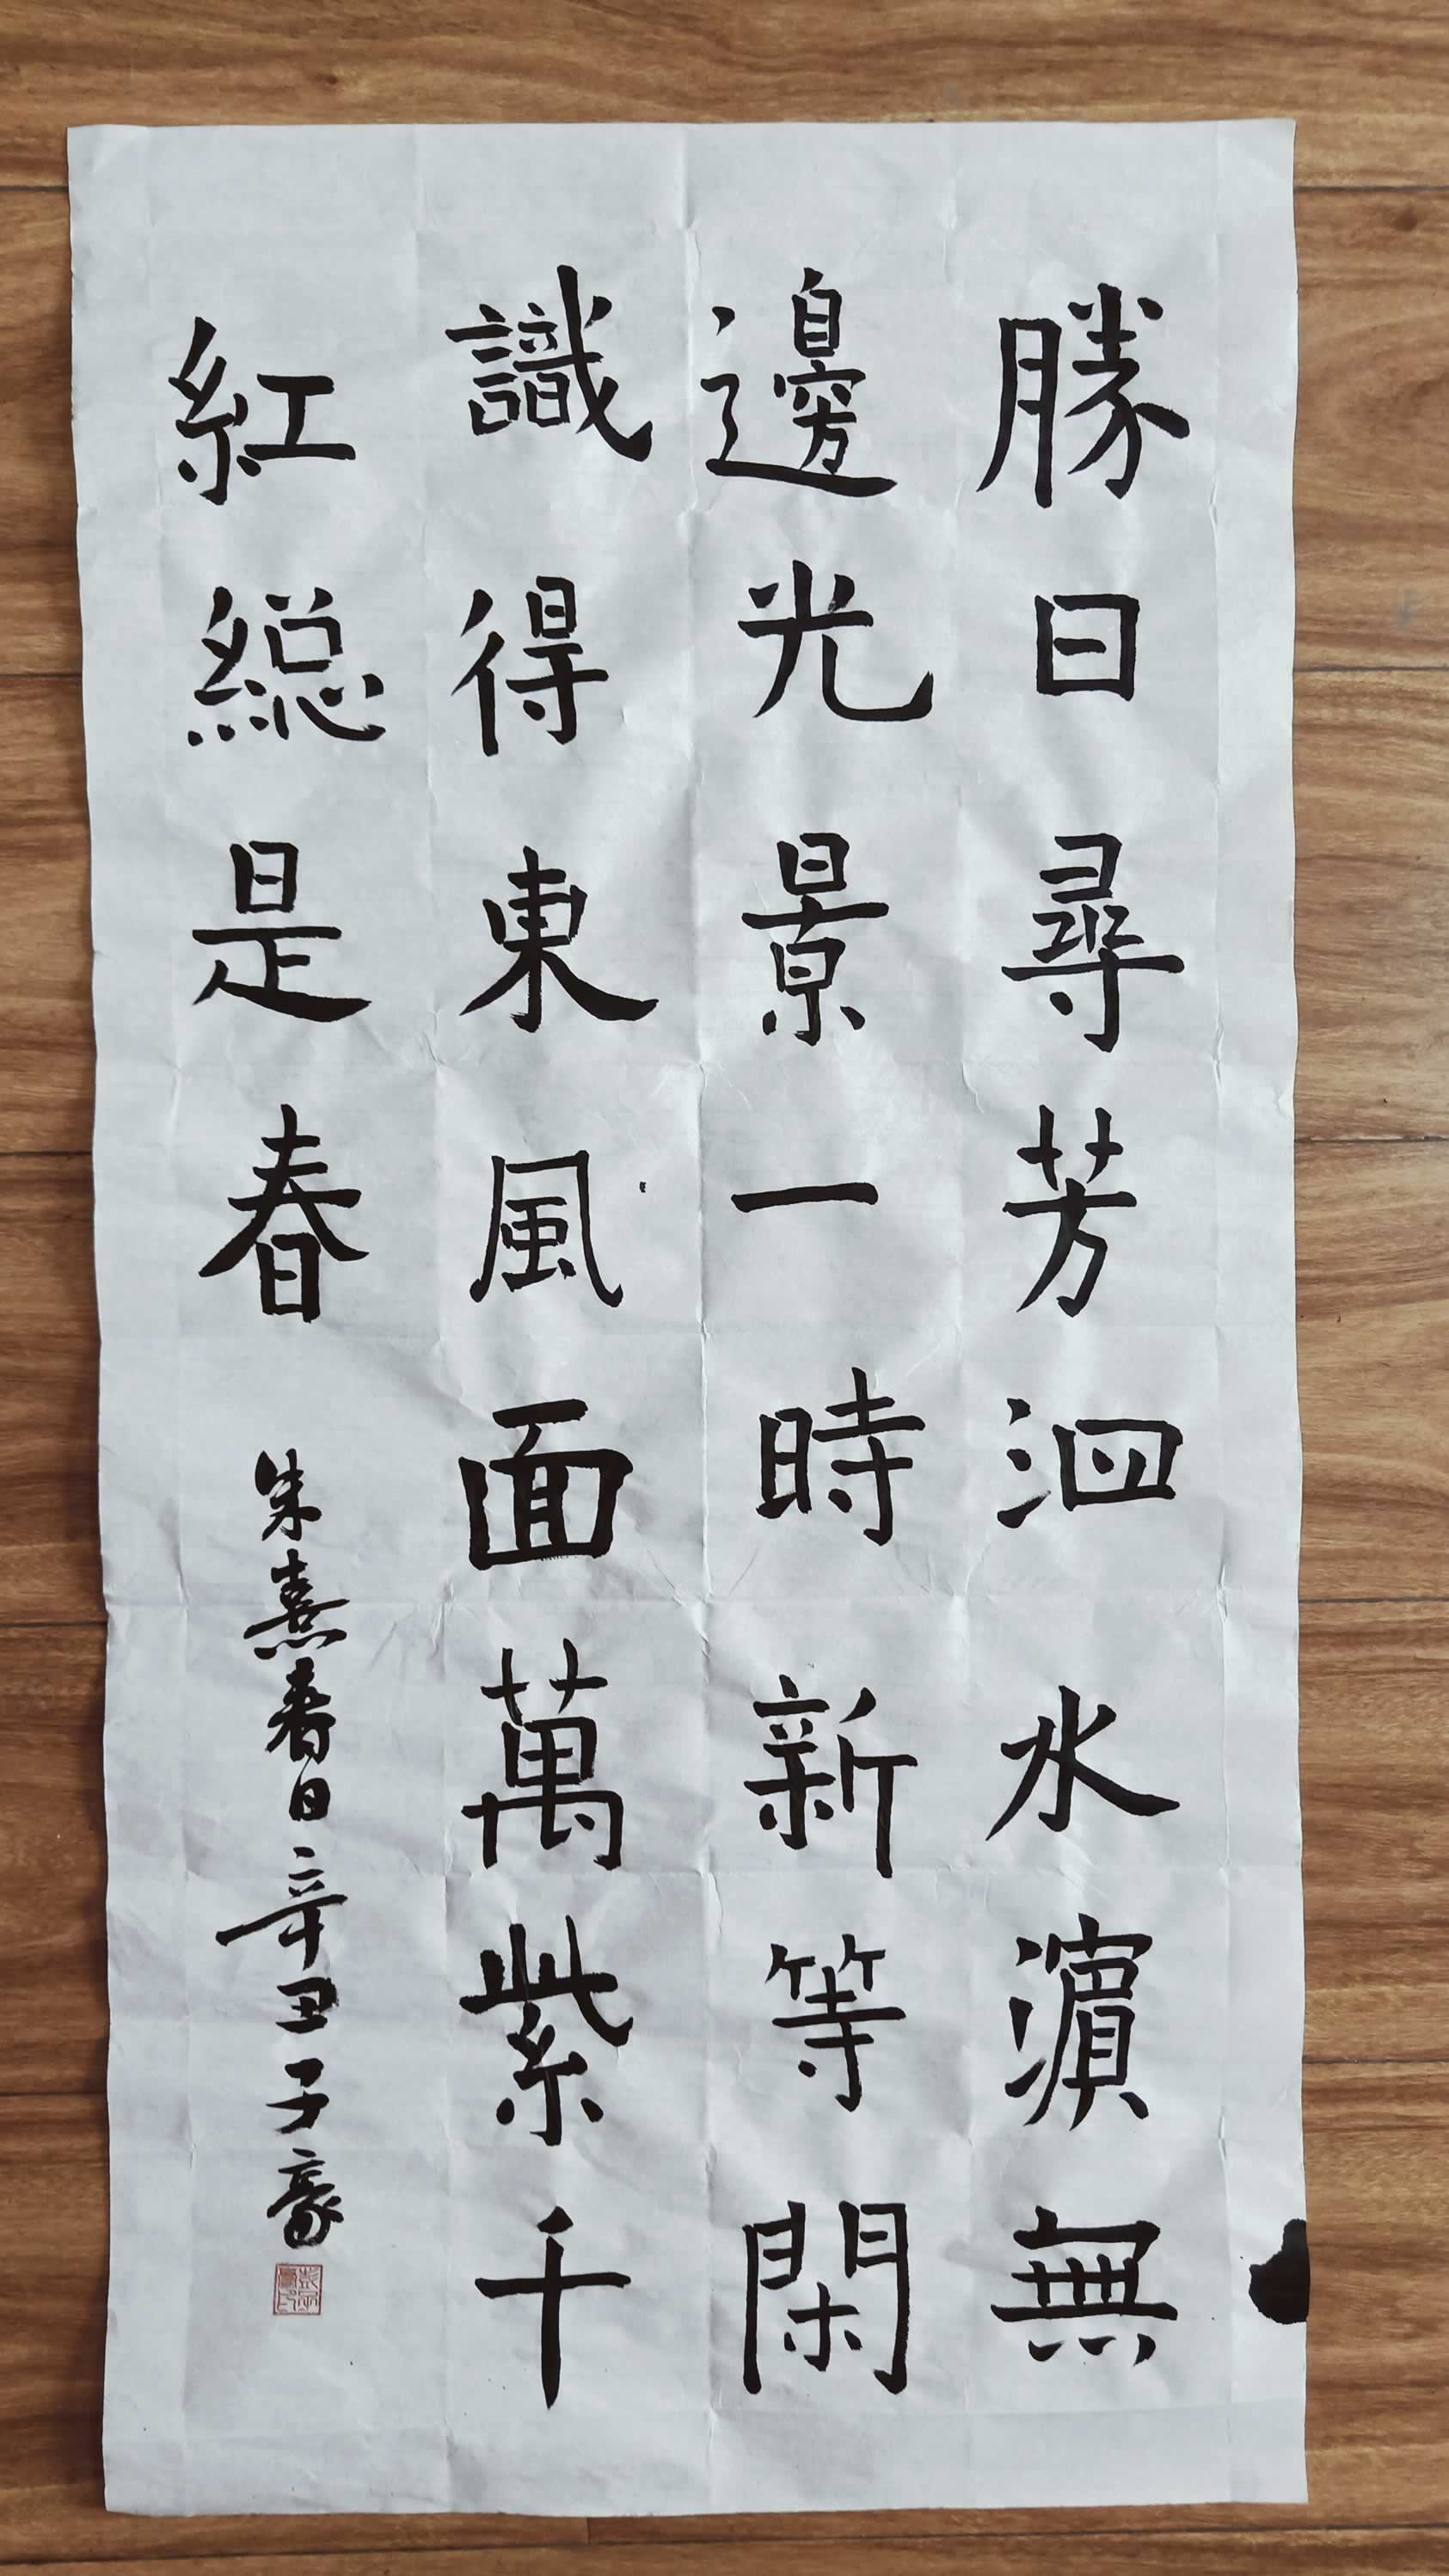 勝日尋芳泗水濱無
邊光景一時新等閑
識得東風面萬紫千
紅總是春
朱熹春日辛丑子豪